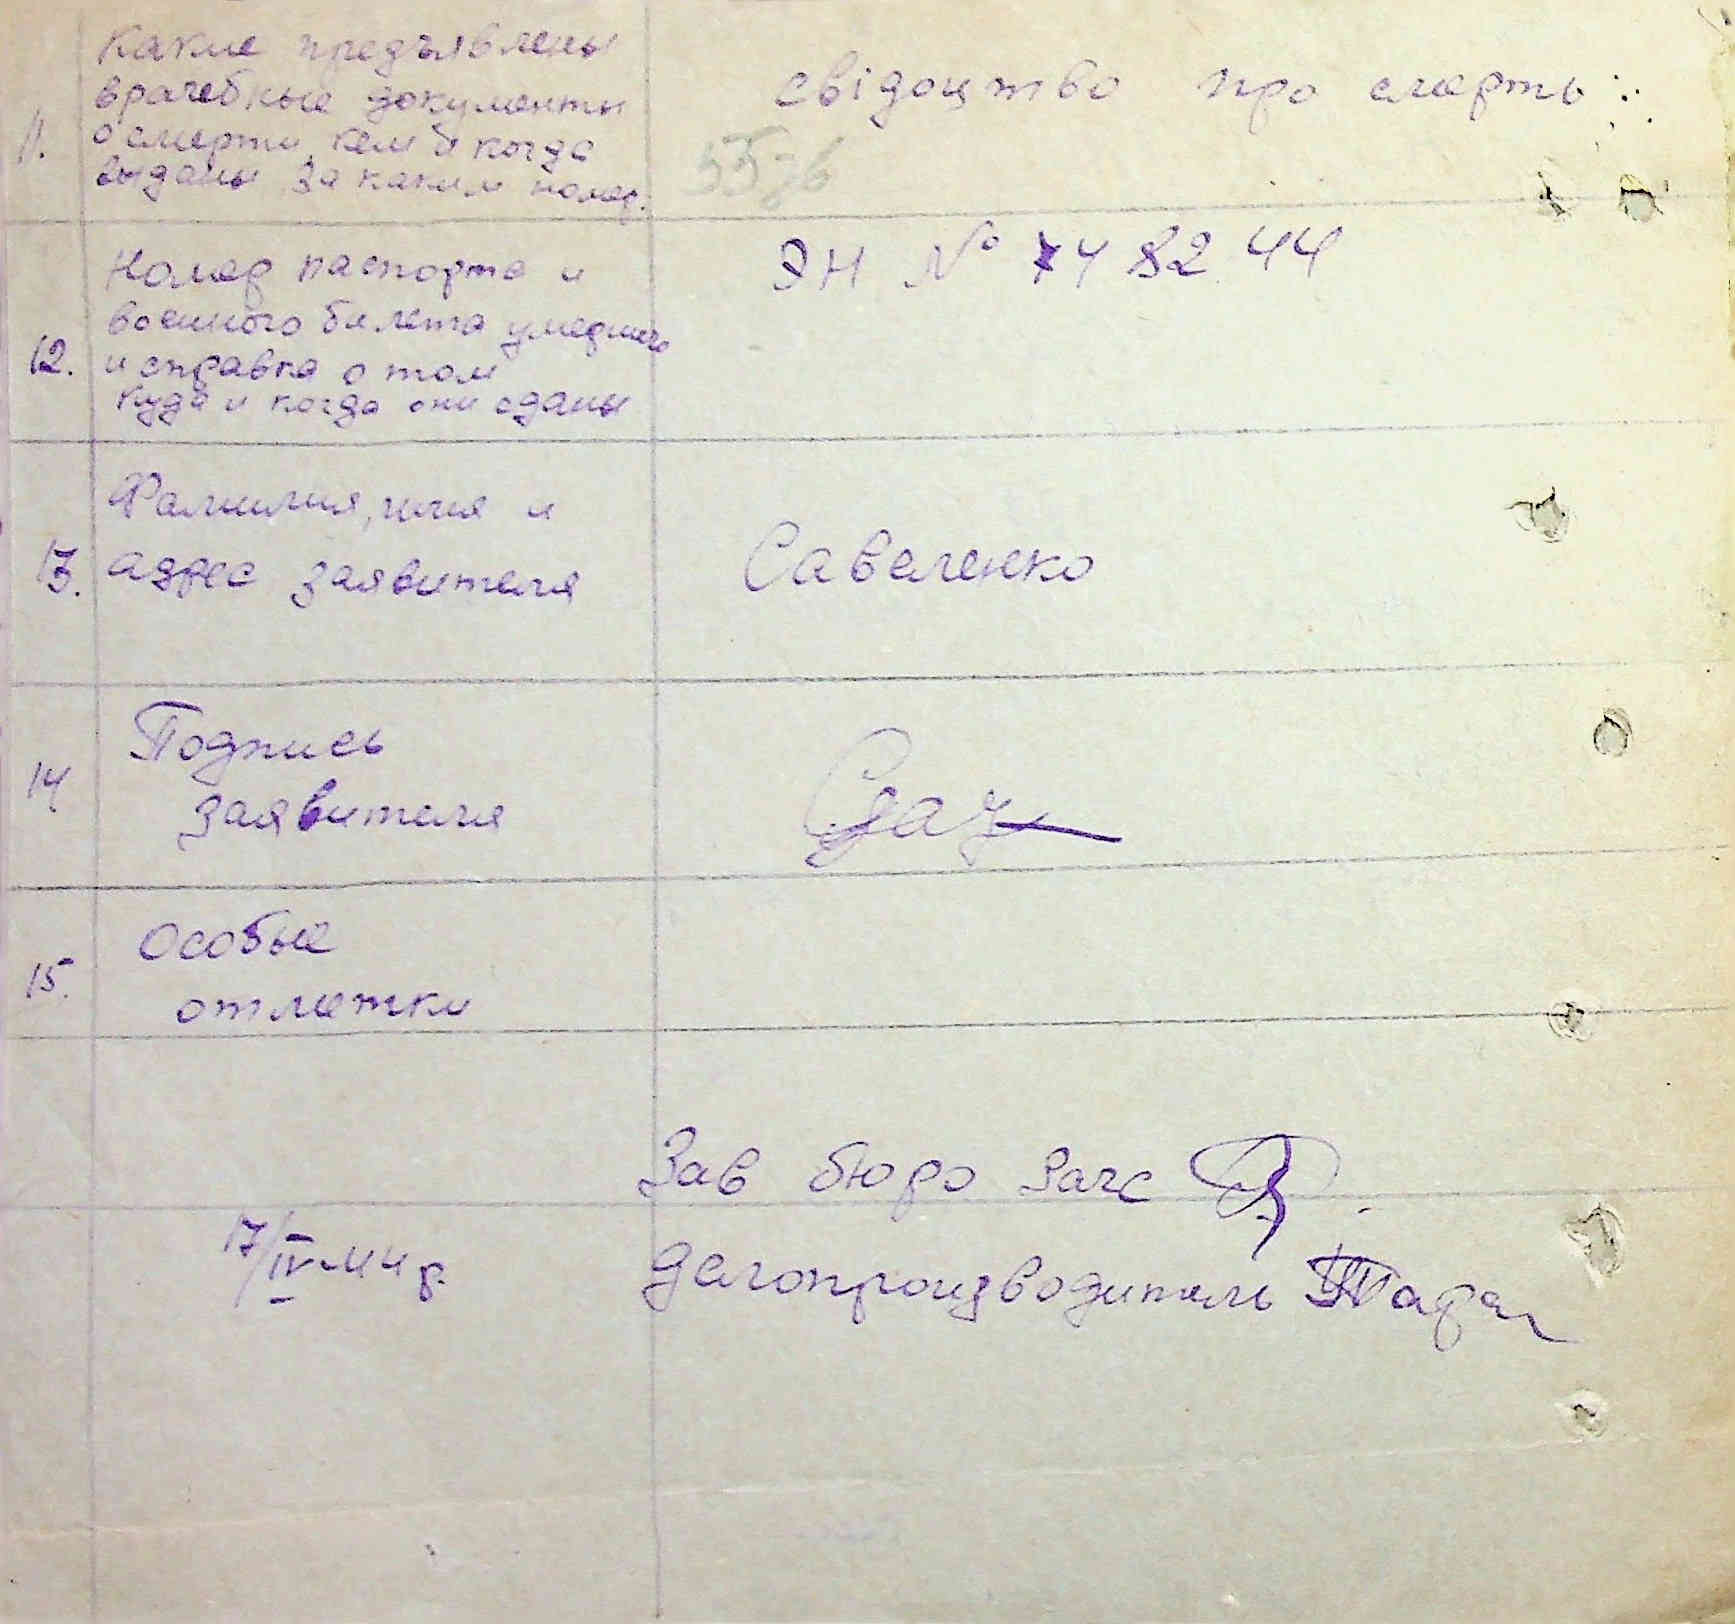 Какие предъявлены
врачебные документы
11. о смерти, кем и когда
выданы за каким номер.
свідоцтво про смерть:
Номер паспорта и
военного билета умершего
12. и справка о том
куда и когда они сданы
ЭН № 748244
Фамилия, имя и
13. адрес заявителя
Савеленко
Подпись
14 заявителя
Особые
15. отметки
Зав бюро Загс
17/IV-44 р.
делопроизводитель